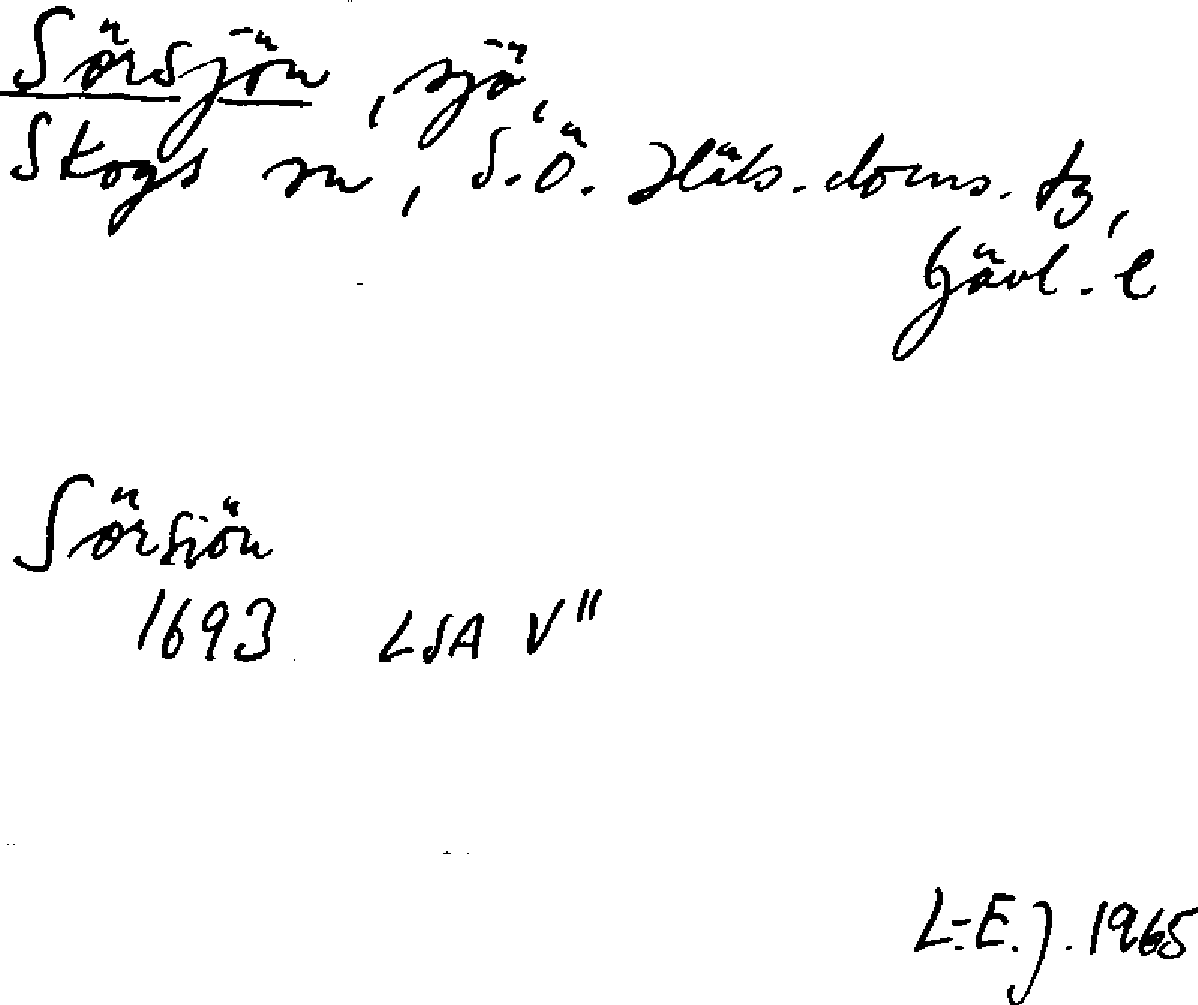 Sörsjön, sjö,
Skogs sn, S.Ö. Häls. doms. tg,
Gävl. l
Sörsiön
1693 LSA V"
L-E.J. 1965